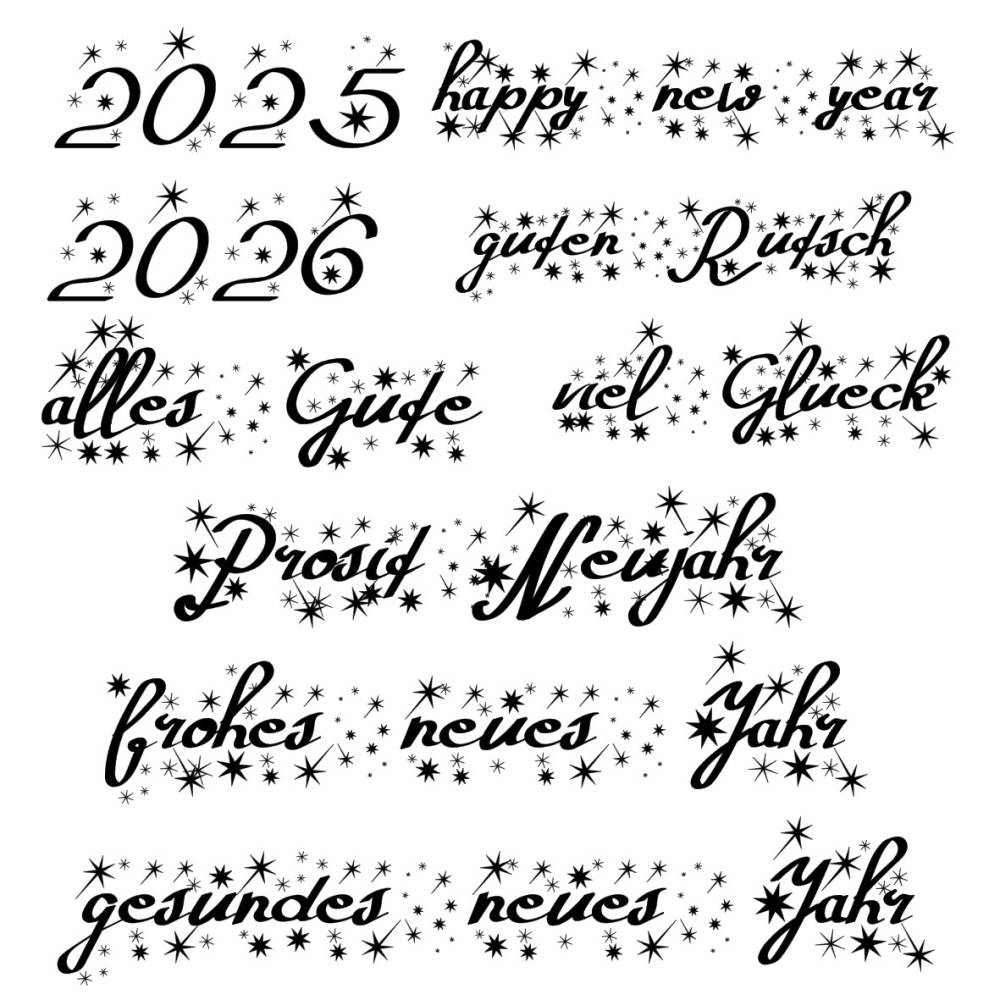 2025 happy new year
2026 guten Rutsch
alles Gute viel Glueck
Prosit Neujahr
frohes neues Jahr
gesundes neues Jahr